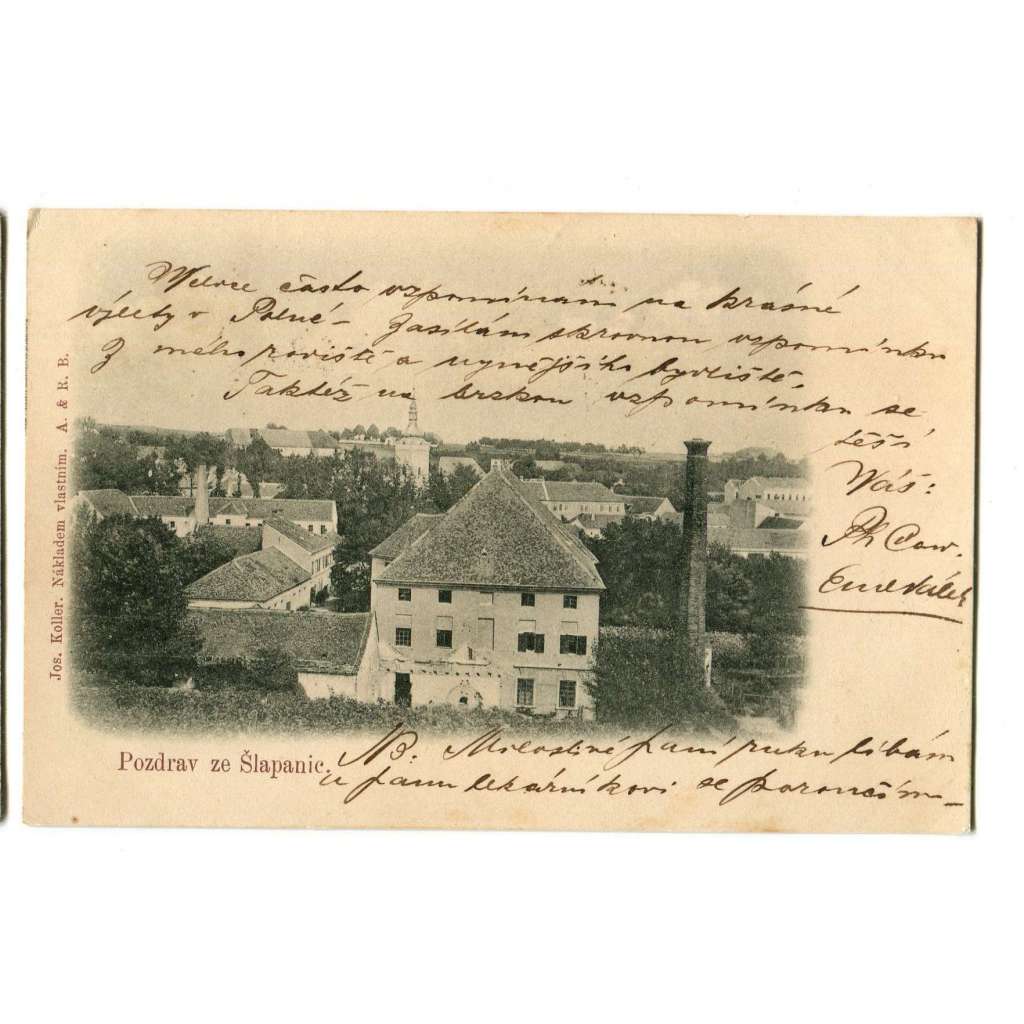 Velice často vzpomínám na krásné
výlety v Polné – Zasílám skrovnou vzpomínku
Z mého roviště a nynějšího bydliště.
Taktéž na brzkou vzpomínku se
těší
Váš:
Jos. Koller. Nákladem vlastním. A. & R. B.
Pozdrav ze Šlapanic.
NB. Milostivé paní ruku líbám
a panu lékárníkovi se poroučím –